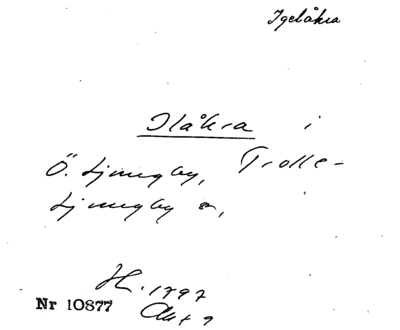 Igelåkra
Ilåkra i
Ö. Ljungby, Trolle-
Ljungby s,
Hl. 1797
Nr 10877 Akt 9